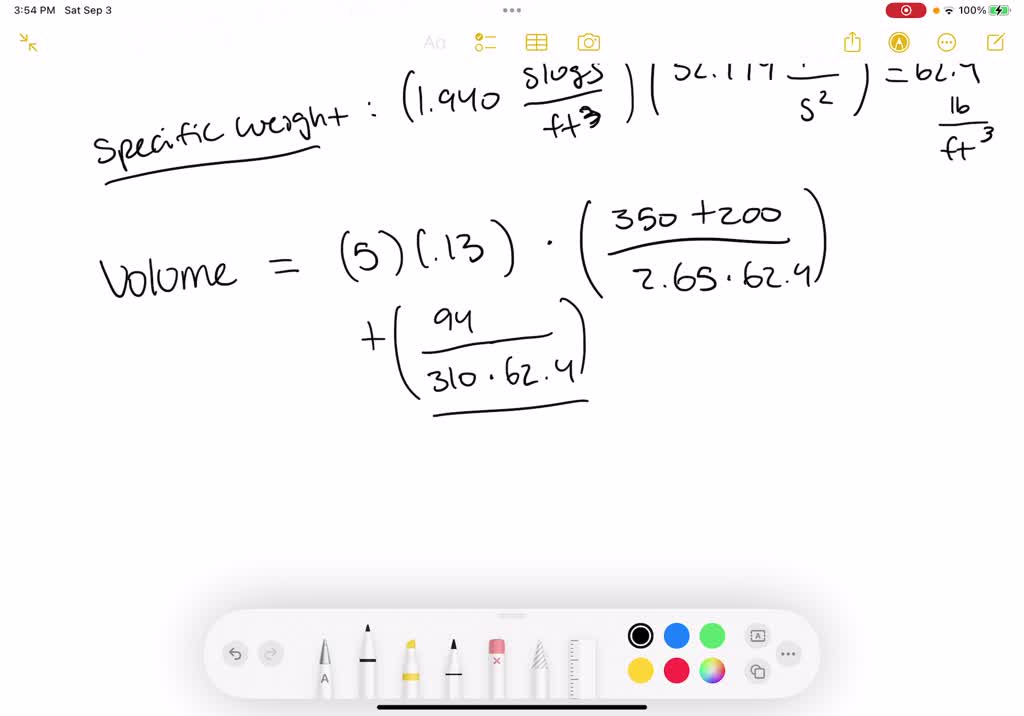 3:54 PM Sat Sep 3
100%
Aa
specific weight : (1.940 slugs/ft³) ( /s²) = 62.4 lb/ft³
Volume = (5)(.13) · (350 + 200 / 2.65 · 62.4)
+ (94 / 310 · 62.4)
A
A